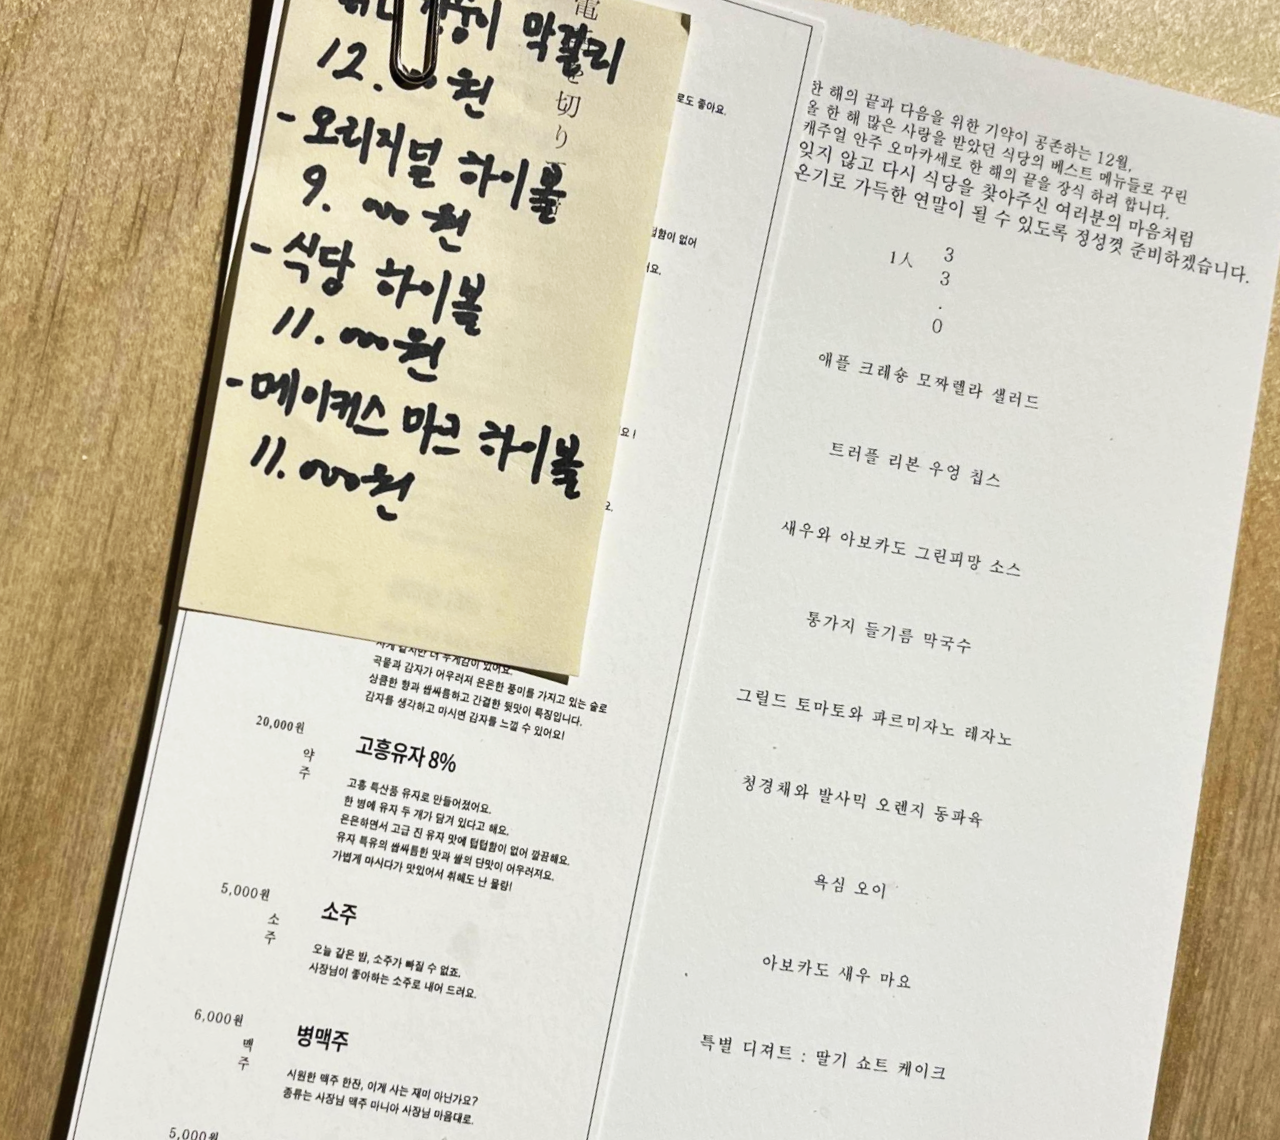 막걸리
12.000원
- 오리지널 하이볼
9.000원
- 식당 하이볼
11.000원
- 메이커스 마크 하이볼
11.000원
切り
로도 좋아요.
텁함이 없어
요.
요!
요.
곡물과 감자가 어우러져 은은한 풍미를 가지고 있는 술로
상큼한 향과 쌉싸름하고 간결한 뒷맛이 특징입니다.
감자를 생각하고 마시면 감자를 느낄 수 있어요!
20,000원
약
주
고흥유자 8%
고흥 특산품 유자로 만들어졌어요.
한 병에 유자 두 개가 담겨 있다고 해요.
은은하면서 고급 진 유자 맛에 텁텁함이 없어 깔끔해요.
유자 특유의 쌉싸름한 맛과 쌀의 단맛이 어우러져요.
가볍게 마시다가 맛있어서 취해도 난 몰랑!
5,000원
소
주
소주
오늘 같은 밤, 소주가 빠질 수 없죠.
사장님이 좋아하는 소주로 내어 드려요.
6,000원
맥
주
병맥주
시원한 맥주 한잔, 이게 사는 재미 아닌가요?
종류는 사장님 맥주 마니아 사장님 마음대로.
5,000원
한 해의 끝과 다음을 위한 기약이 공존하는 12월,
올 한 해 많은 사랑을 받았던 식당의 베스트 메뉴들로 꾸린
캐주얼 안주 오마카세로 한 해의 끝을 장식 하려 합니다.
잊지 않고 다시 식당을 찾아주신 여러분의 마음처럼
온기로 가득한 연말이 될 수 있도록 정성껏 준비하겠습니다.
1人
3
3
.
0
애플 크레숑 모짜렐라 샐러드
트러플 리본 우엉 칩스
새우와 아보카도 그린피망 소스
통가지 들기름 막국수
그릴드 토마토와 파르미자노 레자노
청경채와 발사믹 오렌지 동파육
욕심 오이
아보카도 새우 마요
특별 디져트 : 딸기 쇼트 케이크